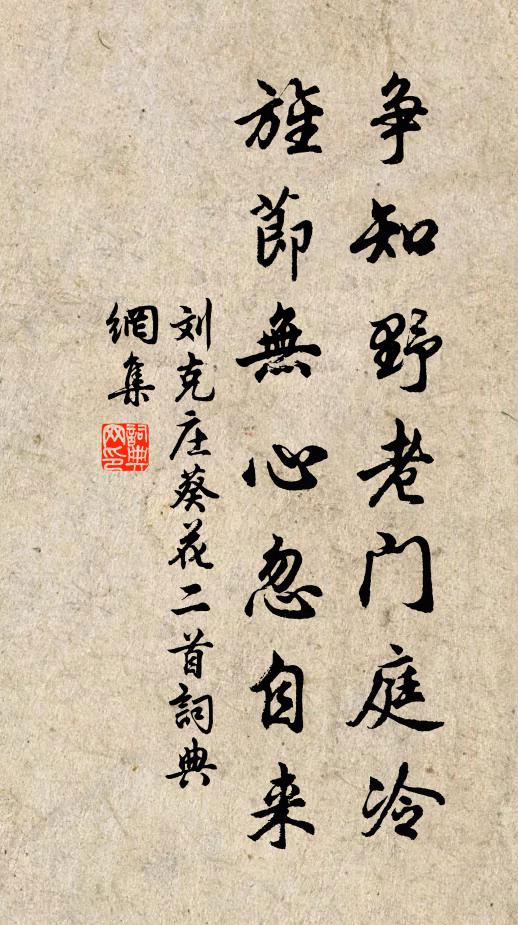 争知野老門庭冷
旌節無心忽自来
刘克庄葵花二首詞典
網集
詞典
网印